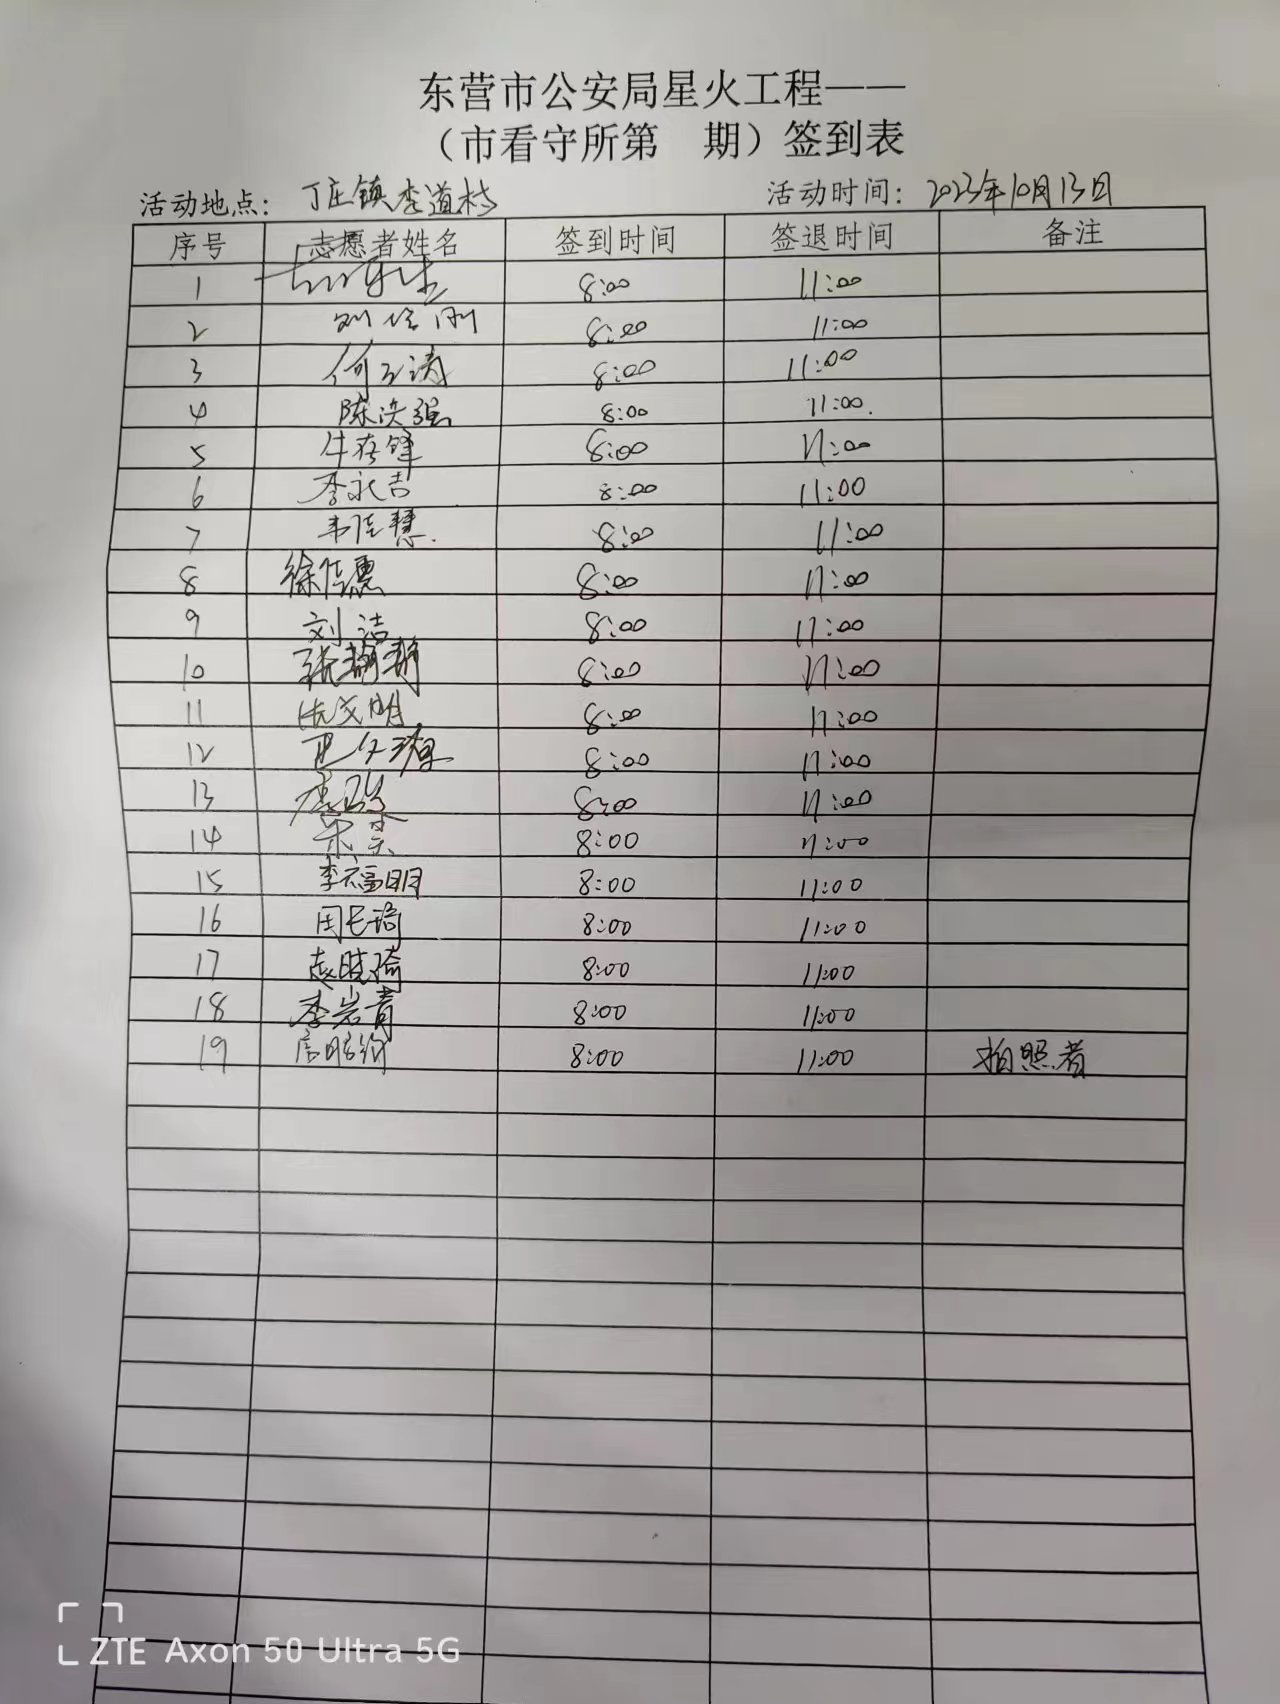 东营市公安局星火工程——
（市看守所第 期）签到表
活动地点： 丁庄镇李道村 活动时间： 2023年10月13日
序号 志愿者姓名 签到时间 签退时间 备注
1 8:00 11:00
2 刘 刚 8:00 11:00
3 何玉涛 8:00 11:00
4 陈洪强 8:00 11:00.
5 牛存锋 8:00 11:00
6 李永吉 8:00 11:00
7 韦佳慧. 8:00 11:00
8 徐佳惠 8:00 11:00
9 刘洁 8:00 11:00
10 张 8:00 11:00
11 8:00 11:00
12 8:00 11:00
13 8:00 11:00
14 8:00 11:00
15 李福明 8:00 11:00
16 周 8:00 11:00
17 赵晓琦 8:00 11:00
18 李岩青 8:00 11:00
19 8:00 11:00 拍照者
ZTE Axon 50 Ultra 5G